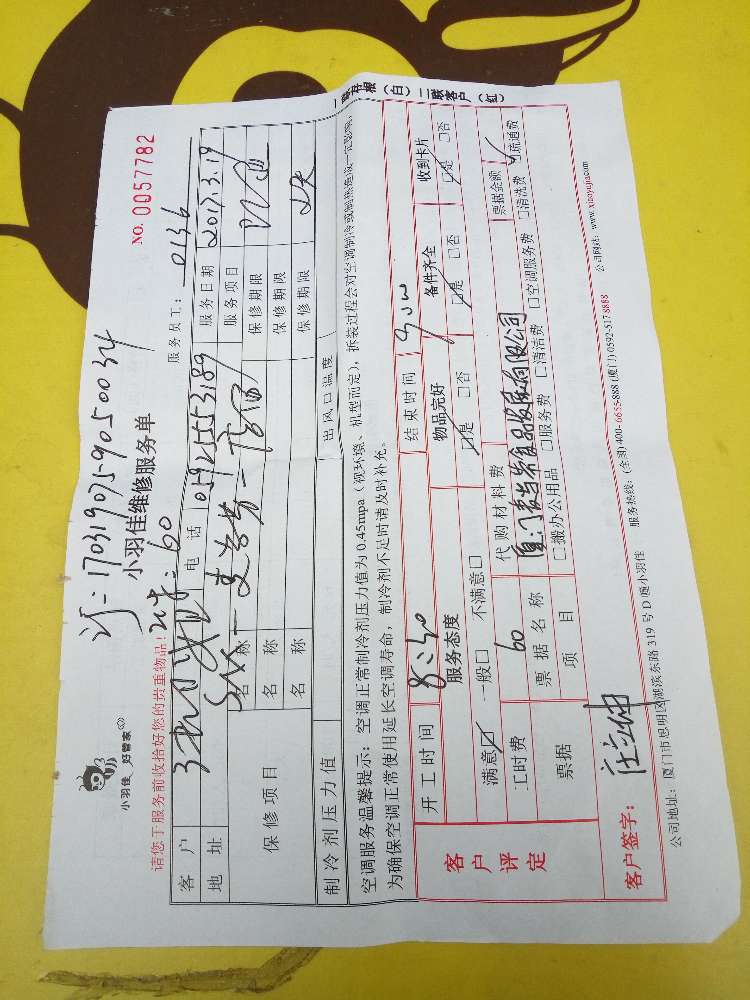 订=170319075-9050034
小羽佳 好管家
小羽佳维修服务单
NO. 0057782
请您于服务前收拾好您的贵重物品!
=60
服务员工: 0136
客户 电话 05925553189 服务日期 2017.3.19
地址 服务项目
保修项目 名称 保修期限
名称 保修期限
名称 保修期限
制冷剂压力值 出风口温度
空调服务温馨提示:空调正常制冷剂压力值为0.45mpa(视环境、机型而定),拆装过程会对空调制冷或制热造成一定影响,
为确保空调正常使用延长空调寿命,制冷剂不足时请及时补充。
一联存根(白)二联客户(红)
客户评定
开工时间 8:30 结束时间 9:00
服务态度 物品完好 备件齐全 收到卡片
满意☑ 一般□ 不满意□ ☑是 □否 ☑是 □否 ☑是 □否
工时费 60 代购材料费
票据 票据名称 票据金额
项目 □搬办公用品 □服务费 □清洁费 □空调服务费 □清洗费 ☑流通费
客户签字:
公司地址:厦门市思明区湖滨东路319号D嘎小羽佳 服务热线:(全国)400-6655-888 (厦门)0592-5178888 公司网站:www.xiaoyujia.com